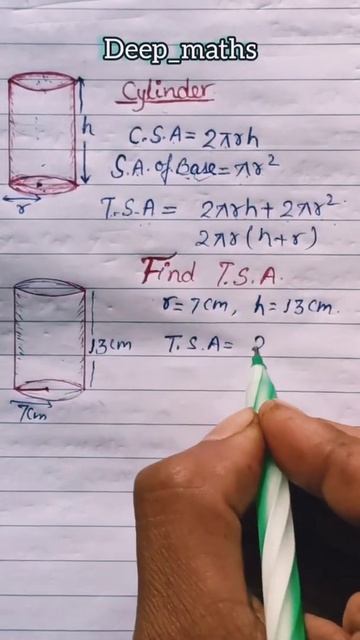 Deep_maths
Cylinder
h
C.S.A = 2πrh
S.A. of Base = πr²
r
T.S.A = 2πrh + 2πr²
2πr (h+r)
Find T.S.A.
r = 7cm, h = 13cm.
13cm
T.S.A = 2
7cm